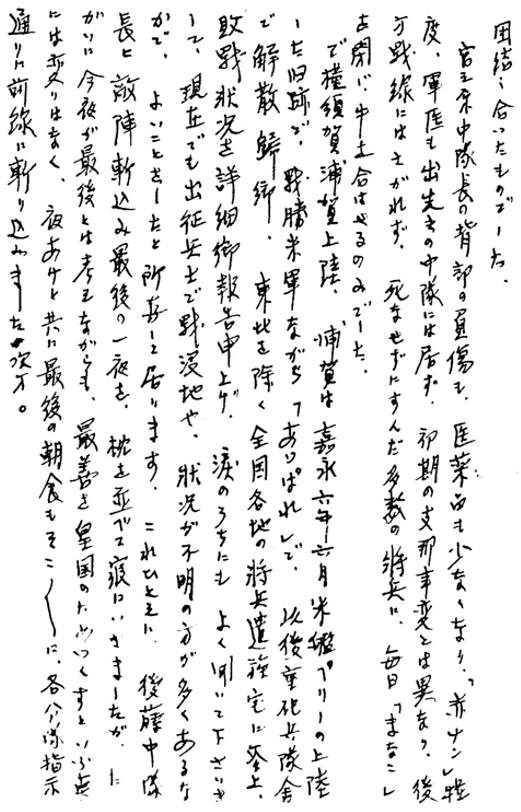 困ៜ合いたものでした。
宮之原中隊長の背部の負傷も、医薬品も少なくなり、「赤チン」程
度、軍医も出先きの中隊には居ず、初期の支那事変とは異なり、後
方戦線にはさがれず、死なせずにすんだ多数の将兵に、毎日「まなこ」
を閉じ、手を合はせるのみでした。
で横須賀浦賀上陸、浦賀は嘉永六年六月米艦ペリーの上陸
した旧跡で、戦勝米軍ながら「あっぱれ」で、以後重砲兵隊舎
で解散歸郷、東北を除く全国各地の将兵遺族宅に参上、
敗戦状況を詳細御報告申上げ、涙のうちにも よく聞いて下さいま
して、現在でも出征兵士で戦没地や、状況が不明の方が多くあるな
かで、よいことをしたと所存して居ります。これひとえに 後藤中隊
長と敵陣斬込み最後の一夜を、枕を並べて寝にいきましたが、た
がいに今夜が最後とは考えながらも、最善を皇国のためつくすといふ点
には変りはなく、夜あけと共に最後の朝食もそこ〱に、各分隊指示
通りに前線に斬り込みました次才。